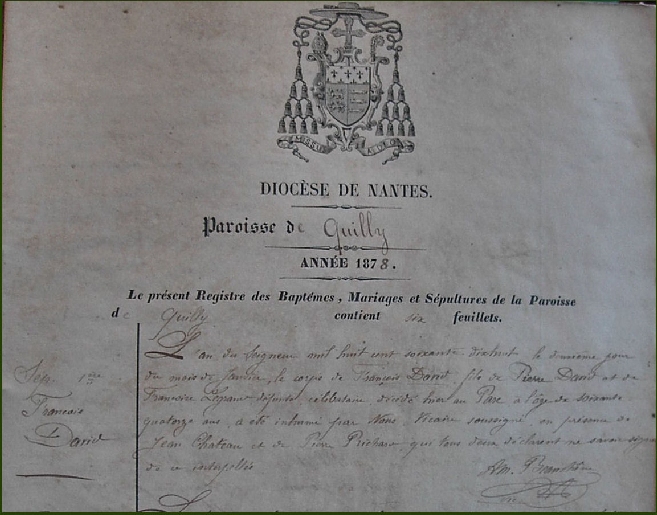 DIOCÈSE DE NANTES.
Paroisse de Quilly
ANNÉE 1878.
Le présent Registre des Baptêmes, Mariages et Sépultures de la Paroisse
de Quilly contient six feuillets.
L'an du Seigneur mil huit cent soixante dixhuit le deuxième jour
Sep. 1ère
du mois de Janvier, le corps de François David, fils de Pierre David et de
François
Françoise défunts, célibataire décédé hier au à l'âge de soixante
David
quatorze ans, a été inhumé par Nous, Vicaire soussigné, en présence de
Jean Chateau et de Pierre qui tous deux déclarent ne savoir signer
de ce interpellés